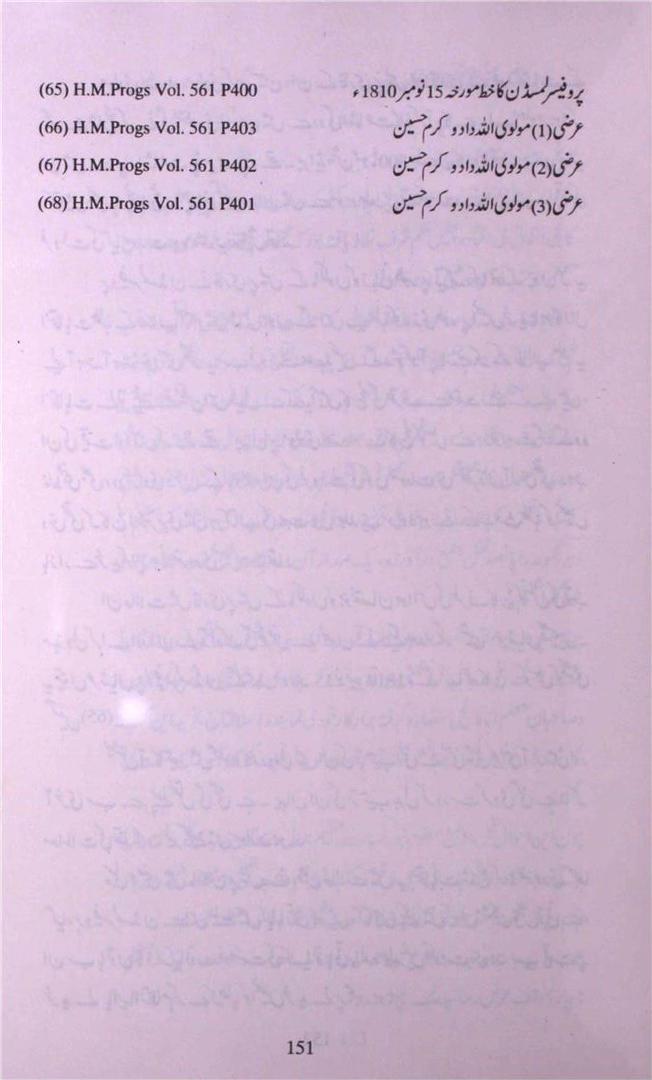 (65) H.M.Progs Vol. 561 P400 پروفیسر لمسڈن کا خط مورخہ 15 نومبر 1810ء
(66) H.M.Progs Vol. 561 P403 عرضی (1) مولوی اللہ داد و کرم حسین
(67) H.M.Progs Vol. 561 P402 عرضی (2) مولوی اللہ داد و کرم حسین
(68) H.M.Progs Vol. 561 P401 عرضی (3) مولوی اللہ داد و کرم حسین
151